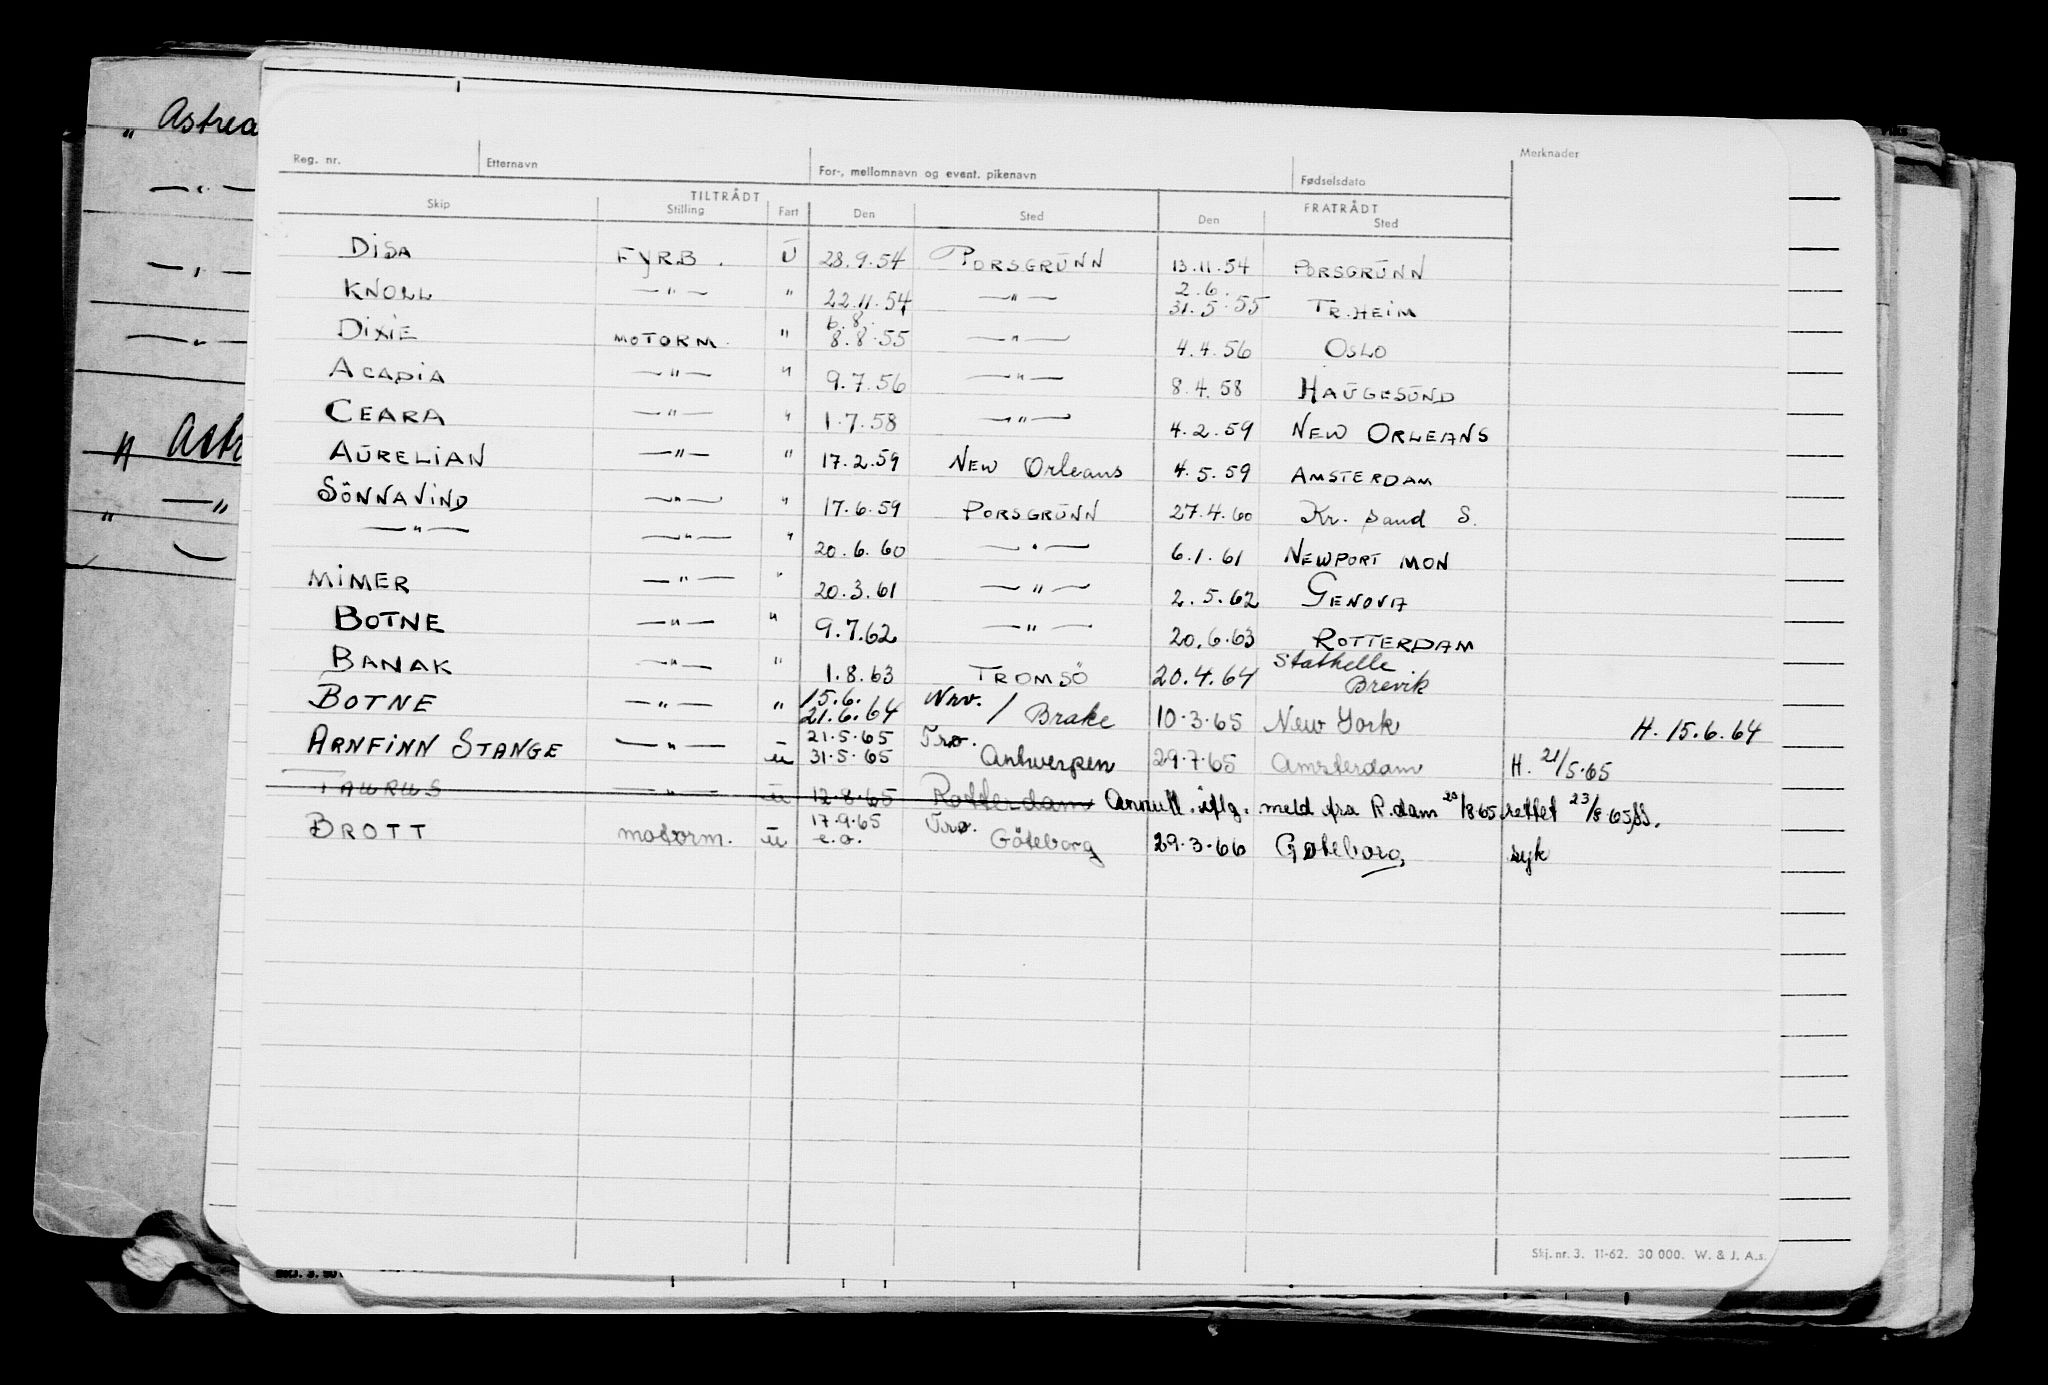 „ Astrea
— „ —
— „ —
— „ —
„ Astr
„ — „
Reg. nr. Etternavn For-, mellomnavn og event. pikenavn Fødselsdato Merknader
TILTRÅDT FRATRÅDT
Skip Stilling Fart Den Sted Den Sted
DISA FYRB. Ū 28.9.54 PORSGRŪNN 13.11.54 PORSGRŪNN
2.6.
KNOLL — " — " 22.11.54 — " — 31.5.55 TR.HEIM
6.8.
DIXIE MOTORM. " 8.8.55 — " — 4.4.56 OSLO
ACADIA — " — " 9.7.56 — " — 8.4.58 HAŪGESŪND
CEARA — " — " 1.7.58 — " — 4.2.59 NEW ORLEANS
AŪRELIAN — " — " 17.2.59 NEW Orleans 4.5.59 AMSTERDAM
SÖNNAVIND — " — " 17.6.59 PORSGRŪNN 27.4.60 Kr. sand S.
— " — — " — " 20.6.60 — " — 6.1.61 NEWPORT MON
MIMER — " — " 20.3.61 — " — 2.5.62 GENOVA
BOTNE — " — " 9.7.62 — " — 20.6.63 ROTTERDAM
Stathelle
BANAK — " — " 1.8.63 TROMSÖ 20.4.64 Brevik
15.6. Nrv.
BOTNE — " — " 21.6.64 / Brake 10.3.65 New York H. 15.6.64
21.5.65 Tro.
ARNFINN STANGE — " — ū 31.5.65 Antwerpen 29.7.65 Amsterdam H. 21/5.65
TAURUS — " — ū 12.8.65 Rotterdam Annull. iflg. meld fra R.dam 20/8 65 rettet 23/8.65
17.9.65 Tro.
BROTT motorm. ū e.o. Göteborg 29.3.66 Gøteborg syk
Skj. nr. 3. 11-62. 30 000. W. & J. A.s.